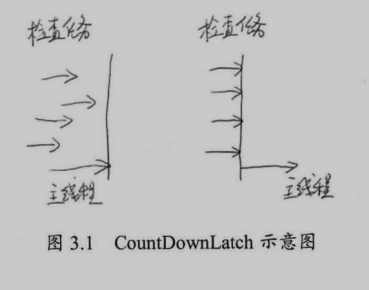 检查任务
检查任务
主线程
主线程
图 3.1 CountDownLatch 示意图